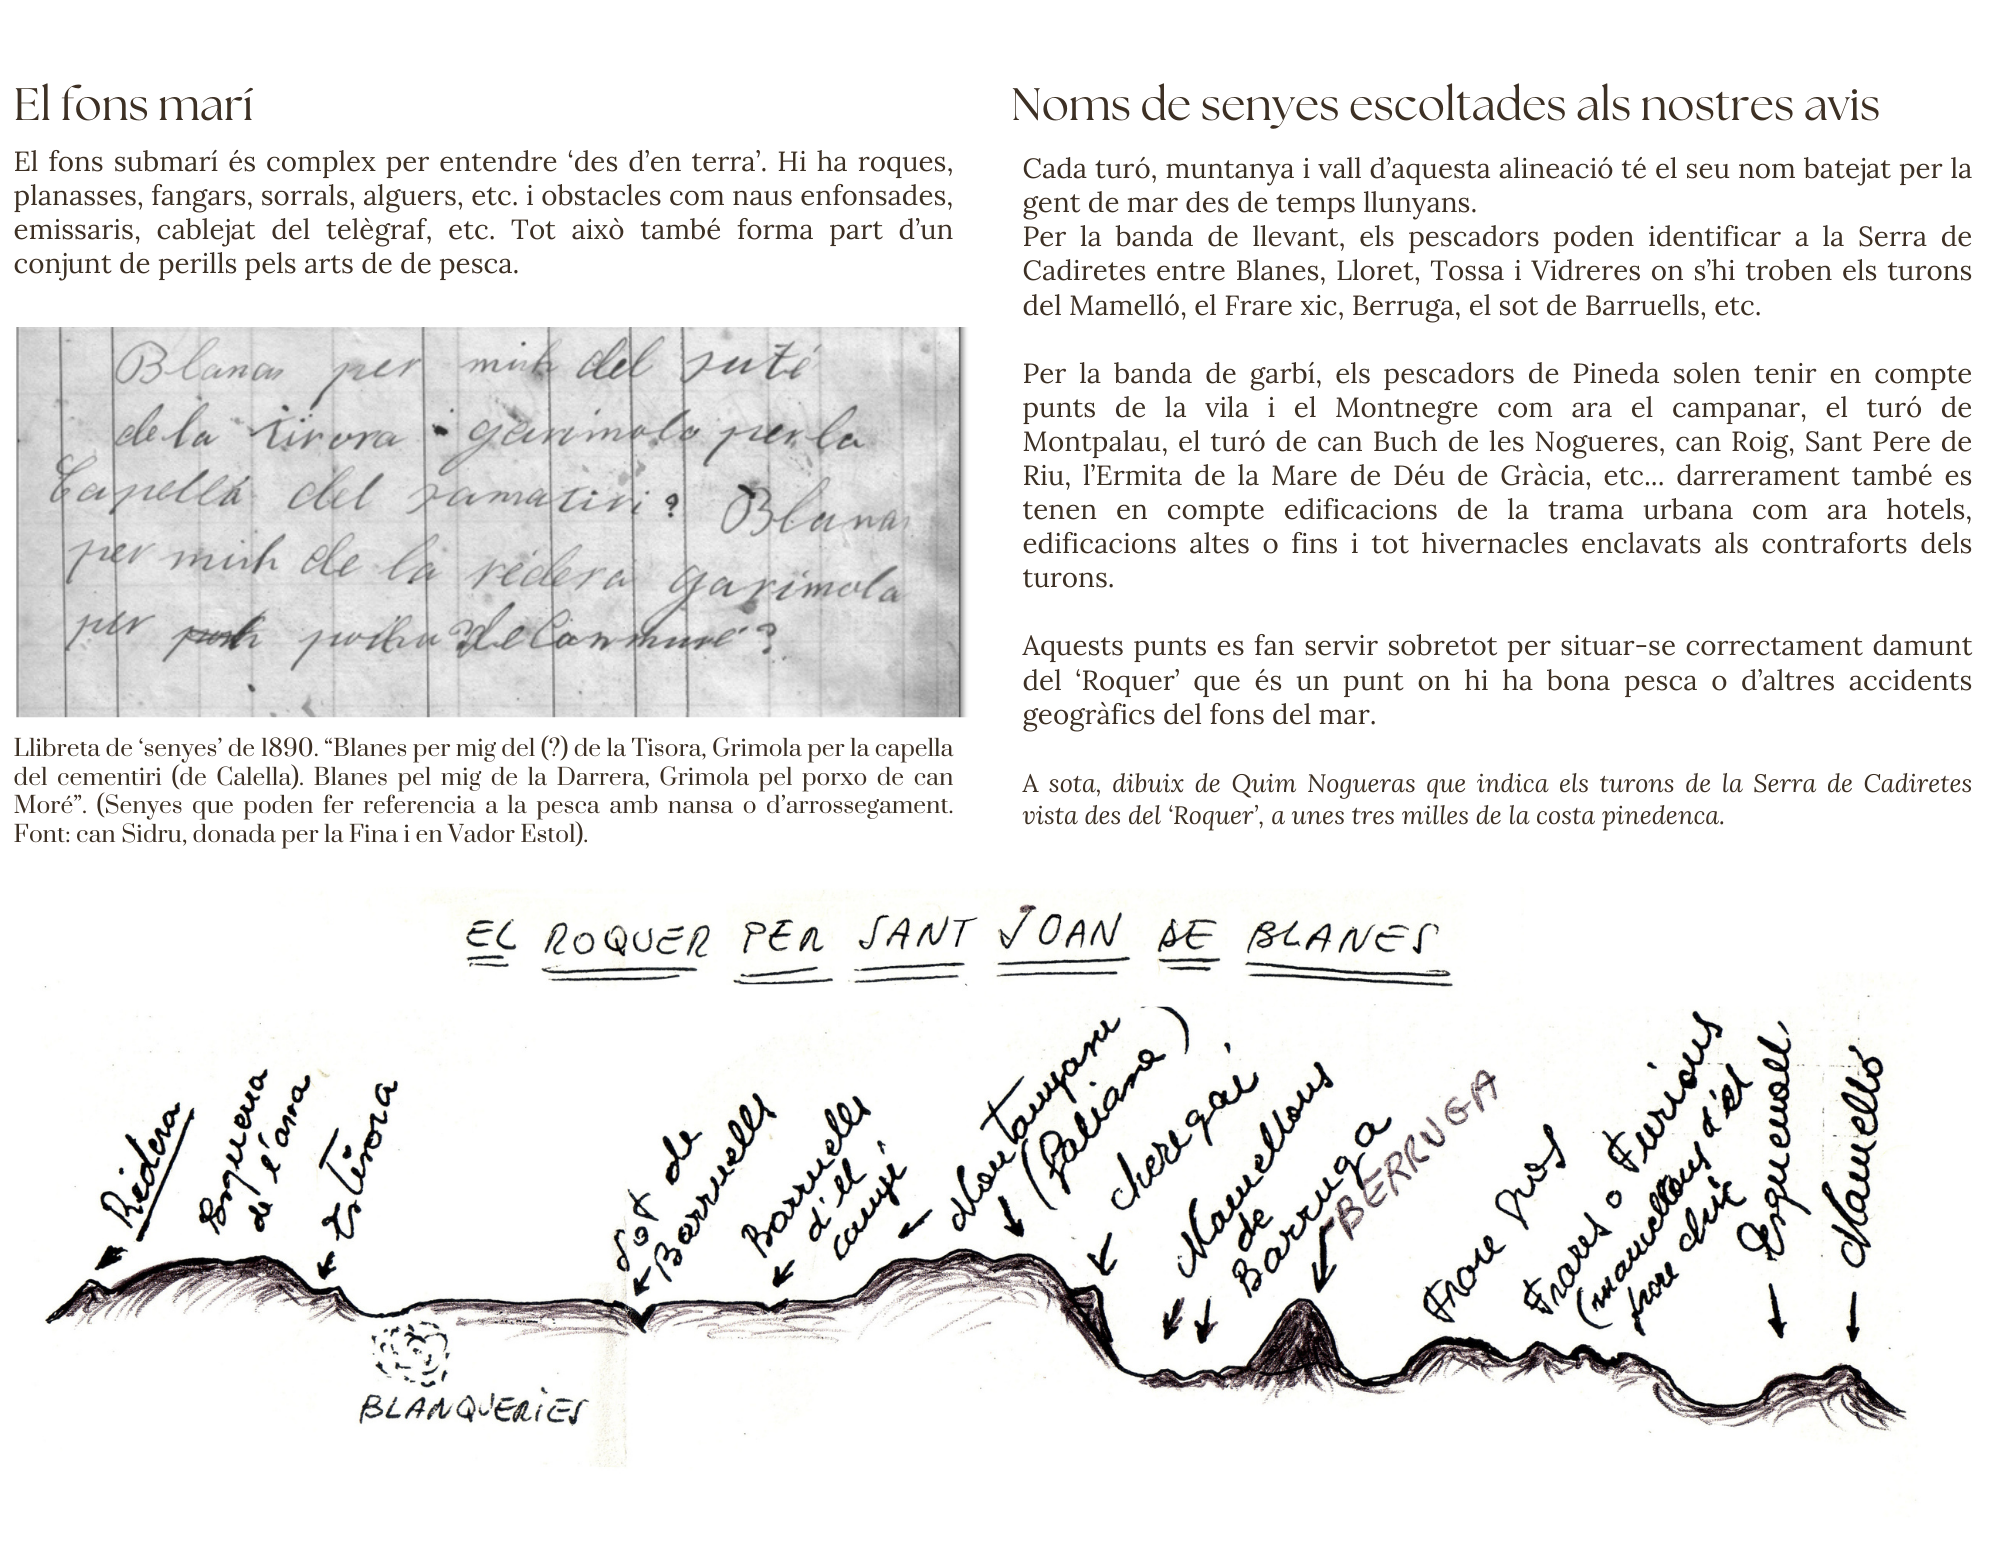 El fons marí
El fons submarí és complex per entendre ‘des d’en terra’. Hi ha roques,
planasses, fangars, sorrals, alguers, etc. i obstacles com naus enfonsades,
emissaris, cablejat del telègraf, etc. Tot això també forma part d’un
conjunt de perills pels arts de de pesca.
Blanas per mich del suté
de la tisora garimola per la
Capella del samatiri? Blanas
per mich de la rédera garimola
per
Llibreta de ‘senyes’ de 1890. “Blanes per mig del (?) de la Tisora, Grimola per la capella
del cementiri (de Calella). Blanes pel mig de la Darrera, Grimola pel porxo de can
Moré”. (Senyes que poden fer referencia a la pesca amb nansa o d’arrossegament.
Font: can Sidru, donada per la Fina i en Vador Estol).
Noms de senyes escoltades als nostres avis
Cada turó, muntanya i vall d’aquesta alineació té el seu nom batejat per la
gent de mar des de temps llunyans.
Per la banda de llevant, els pescadors poden identificar a la Serra de
Cadiretes entre Blanes, Lloret, Tossa i Vidreres on s’hi troben els turons
del Mamelló, el Frare xic, Berruga, el sot de Barruells, etc.
Per la banda de garbí, els pescadors de Pineda solen tenir en compte
punts de la vila i el Montnegre com ara el campanar, el turó de
Montpalau, el turó de can Buch de les Nogueres, can Roig, Sant Pere de
Riu, l’Ermita de la Mare de Déu de Gràcia, etc... darrerament també es
tenen en compte edificacions de la trama urbana com ara hotels,
edificacions altes o fins i tot hivernacles enclavats als contraforts dels
turons.
Aquests punts es fan servir sobretot per situar-se correctament damunt
del ‘Roquer’ que és un punt on hi ha bona pesca o d’altres accidents
geogràfics del fons del mar.
A sota, dibuix de Quim Nogueras que indica els turons de la Serra de Cadiretes
vista des del ‘Roquer’, a unes tres milles de la costa pinedenca.
EL ROQUER PER SANT JOAN DE BLANES
Rédera
de l'ama
Estisora
Sot de
Barruells
Barruells
d'ell
Montanyans
(Paliana)
Cheregai
Mamellons
de
Barruga
BERRUGA
Frare Gros
Frares o Furious
(mamellons d'el
frare chic
Esquenoll
Mamelló
BLANQUERIES